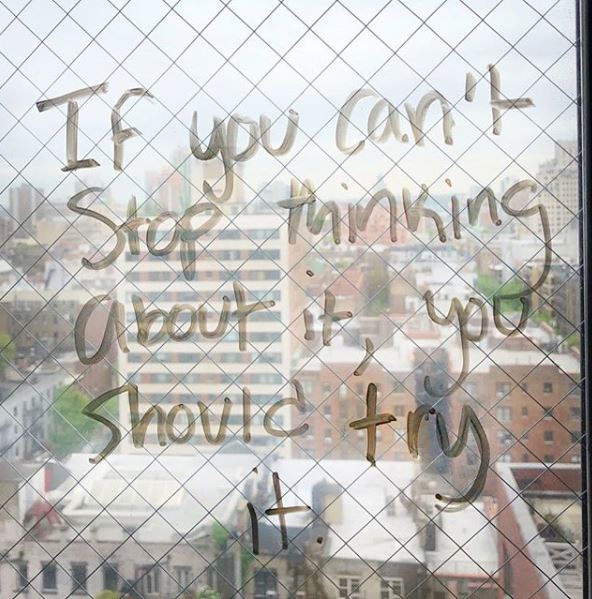 If you can't
Stop thinking
about it, you
should try
it.